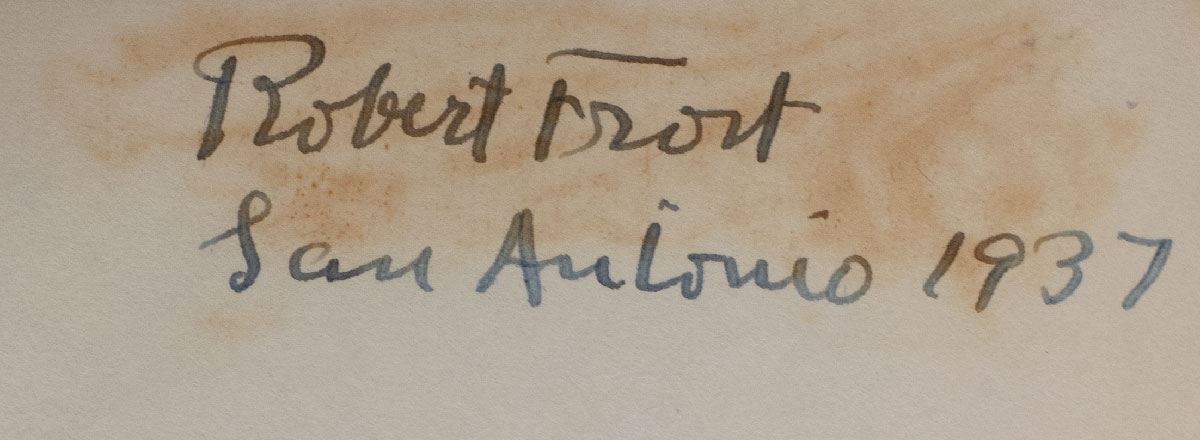 Robert Frost
San Antonio 1937